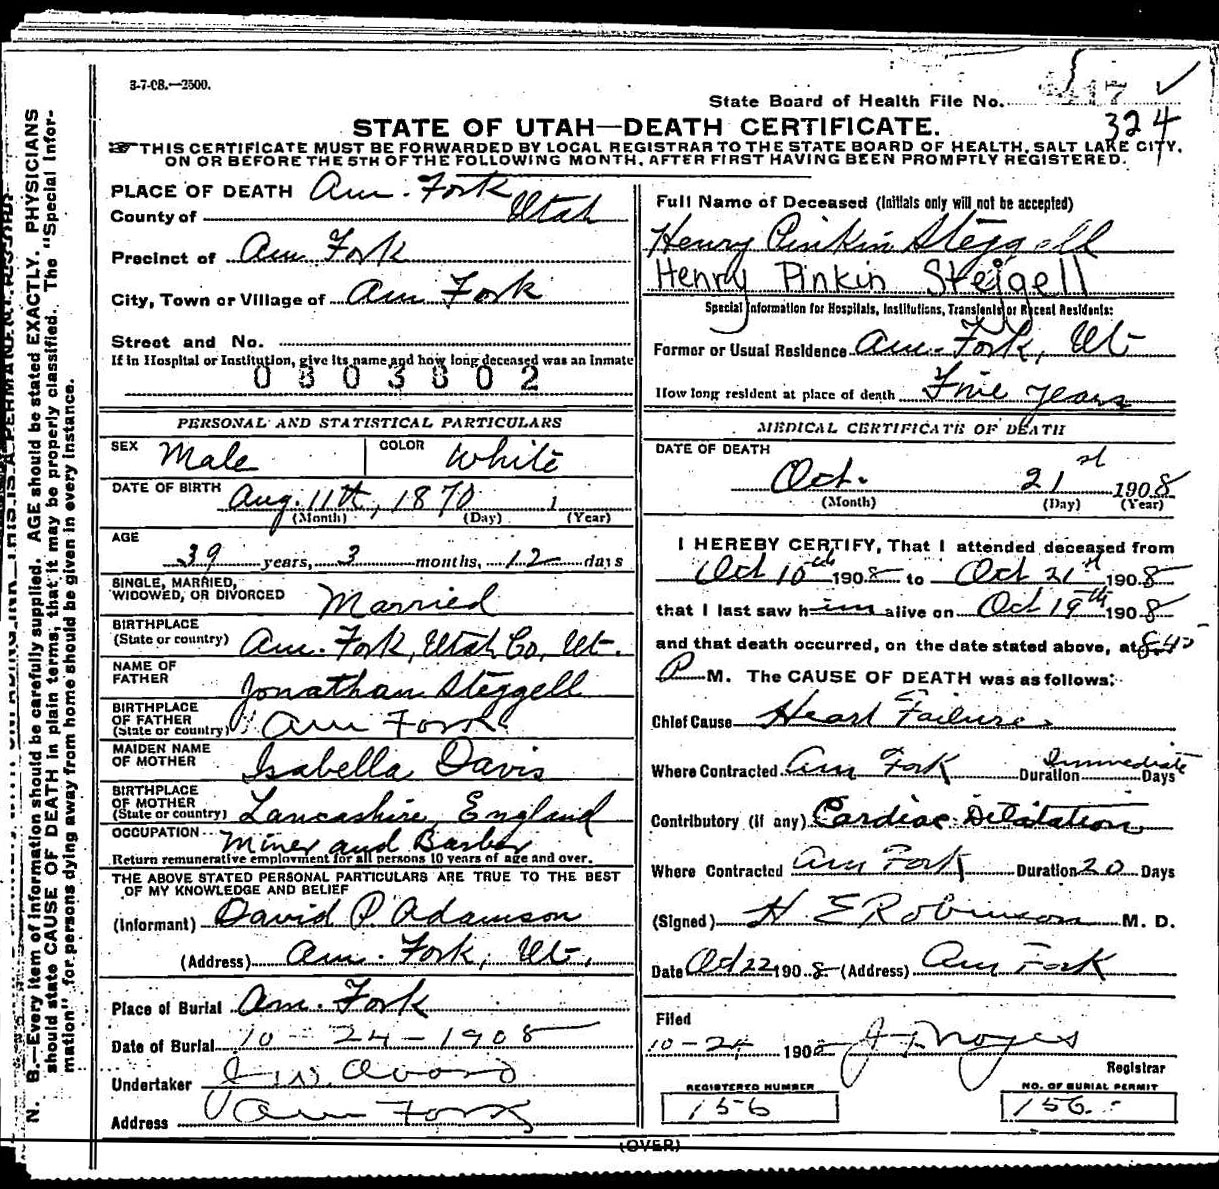 3-7-08.—2500.
State Board of Health File No. 417
324
STATE OF UTAH—DEATH CERTIFICATE.
THIS CERTIFICATE MUST BE FORWARDED BY LOCAL REGISTRAR TO THE STATE BOARD OF HEALTH, SALT LAKE CITY,
ON OR BEFORE THE 5TH OF THE FOLLOWING MONTH, AFTER FIRST HAVING BEEN PROMPTLY REGISTERED.
N. B.—Every item of information should be carefully supplied. AGE should be stated EXACTLY. PHYSICIANS
should state CAUSE OF DEATH in plain terms, that it may be properly classified. The "Special Infor-
mation" for persons dying away from home should be given in every instance.
PLACE OF DEATH Am. Fork
County of Utah
Precinct of Am Fork
City, Town or Village of Am Fork
Street and No.
If in Hospital or Institution, give its name and how long deceased was an Inmate
0803802
PERSONAL AND STATISTICAL PARTICULARS
SEX Male COLOR White
DATE OF BIRTH Aug. 11th, 1870
(Month) (Day) (Year)
AGE
39 years, 3 months, 12 days
SINGLE, MARRIED,
WIDOWED, OR DIVORCED Married
BIRTHPLACE
(State or country) Am. Fork, Utah Co, Ut.
NAME OF
FATHER Jonathan Steggell
BIRTHPLACE
OF FATHER
(State or country) Am Fork
MAIDEN NAME
OF MOTHER Isabella Davis
BIRTHPLACE
OF MOTHER
(State or country) Lancashire, England
OCCUPATION Miner and Barber
Return remunerative employment for all persons 10 years of age and over.
THE ABOVE STATED PERSONAL PARTICULARS ARE TRUE TO THE BEST
OF MY KNOWLEDGE AND BELIEF
(Informant) David P. Adamson
(Address) Am. Fork, Ut.
Place of Burial Am. Fork
Date of Burial 10-24-1908
Undertaker
Address Am Fork
Full Name of Deceased (Initials only will not be accepted)
Henry Pinkin Steggell
Henry Pinkin Steigell
Special Information for Hospitals, Institutions, Transients or Recent Residents:
Former or Usual Residence Am. Fork, Ut
How long resident at place of death Five years
MEDICAL CERTIFICATE OF DEATH
DATE OF DEATH
Oct. 21st 1908
(Month) (Day) (Year)
I HEREBY CERTIFY, That I attended deceased from
Oct 10th 1908 to Oct 21st 1908
that I last saw him alive on Oct 19th 1908
and that death occurred, on the date stated above, at 8.45
P M. The CAUSE OF DEATH was as follows:
Chief Cause Heart Failure
Where Contracted Am Fork Duration Immediate Days
Contributory (if any) Cardiac Dilatation
Where Contracted Am Fork Duration 20 Days
(Signed) H E Robinson M. D.
Date Oct 22 1908 (Address) Am Fork
Filed
10-24 1908 J F Noyes
Registrar
REGISTERED NUMBER NO. OF BURIAL PERMIT
156 156
(OVER)